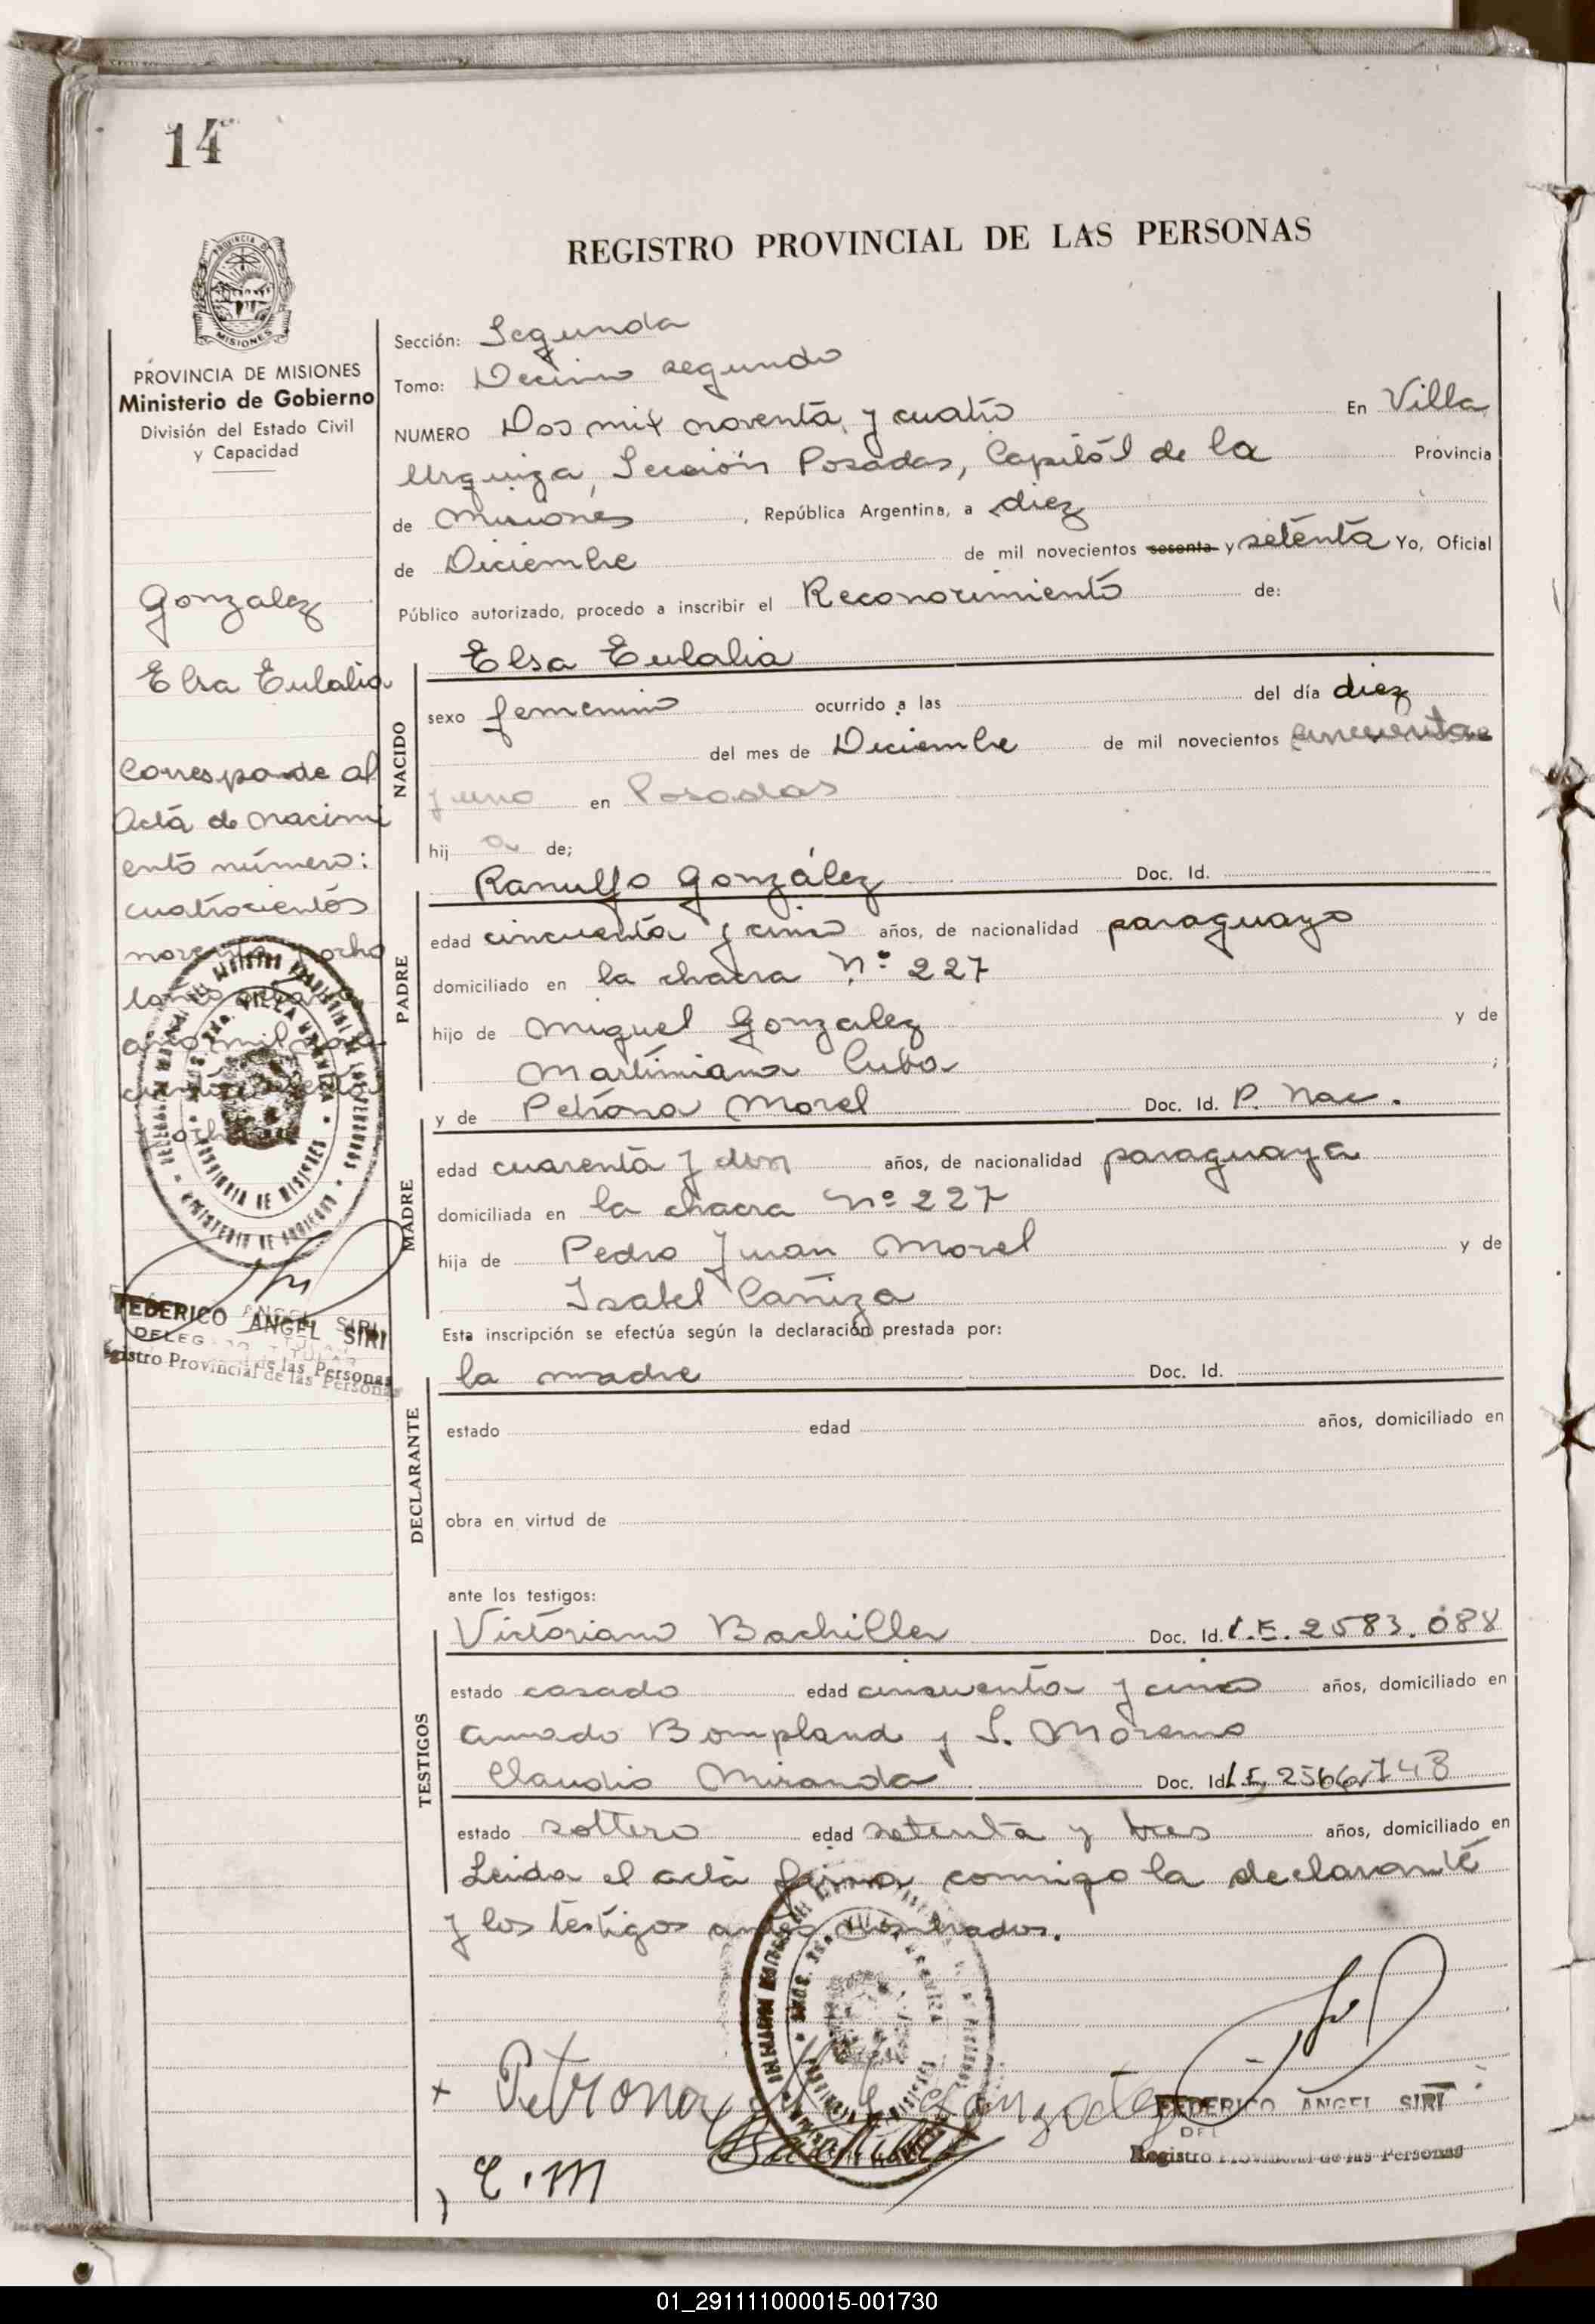 14
REGISTRO PROVINCIAL DE LAS PERSONAS
PROVINCIA DE MISIONES
Ministerio de Gobierno
División del Estado Civil
y Capacidad
Gonzalez
Elsa Eulalia
Corresponde al
Acta de nacimi
ento número:
cuatrocientos
noventa y ocho
FEDERICO ANGEL SIRI
Registro Provincial de las Personas
Sección: Segunda
Tomo: Decimo segundo
NUMERO Dos mil noventa y cuatro En Villa
Urquiza, Sección Posadas, Capital de la Provincia
de Misiones, República Argentina, a diez
de Diciembre de mil novecientos sesenta y setenta Yo, Oficial
Público autorizado, procedo a inscribir el Reconocimiento de:
NACIDO
Elsa Eulalia
sexo femenino ocurrido a las del día diez
del mes de Diciembre de mil novecientos cincuenta
y uno en Posadas
hij a de;
PADRE
Ranulfo González Doc. Id.
edad cincuenta y cinco años, de nacionalidad paraguayo
domiciliado en la chacra Nº 227
hijo de Miguel Gonzalez y de
Martimiana Cuba ;
MADRE
y de Petrona Morel Doc. Id. P. Nac.
edad cuarenta y dos años, de nacionalidad paraguaya
domiciliada en la chacra Nº 227
hija de Pedro Juan Morel y de
Isabel Cañiza
Esta inscripción se efectúa según la declaración prestada por:
DECLARANTE
la madre Doc. Id.
estado edad años, domiciliado en
obra en virtud de
ante los testigos:
TESTIGOS
Victoriano Bachiller Doc. Id. L.E. 2583.088
estado casado edad cincuenta y cinco años, domiciliado en
Amado Bompland y S. Moreno
Claudio Miranda Doc. Id. L.E.
estado soltero edad setenta y tres años, domiciliado en
Leida el acta firma conmigo la declarante
y los testigos antes nombrados.
x Petrona Gonzalez
FEDERICO ANGEL SIRI
Registro Provincial de las Personas
C.M
01_291111000015-001730